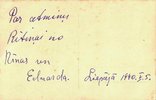 Par atmiņu
Pētiņai no
Nīnas un
Eduarda. Liepājā 1940.X.5.